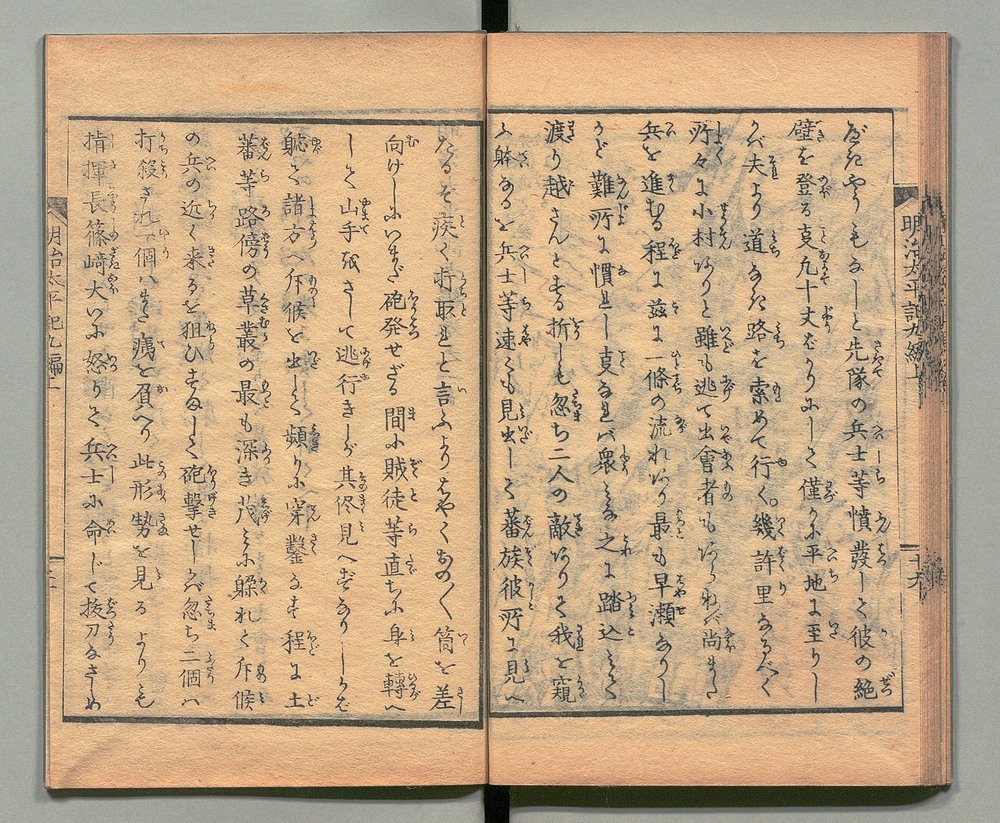 べきやうもなしと先隊の兵士等憤發して彼の絶
壁を登る事凡十丈ばかりにして僅かに平地に至りし
かバ夫より道なき路を索めて行く。幾許里なるべく
所々に小村ありと雖も逃て出會者もあらねバ尚また
兵を進むる程に茲に一條の流れあり最も早瀬なりし
かど難所に慣れし事なれバ衆みな之に踏込みて
渡り越さんとする折しも忽ち二人の敵ありて我を窺
ふ躰なるを兵士等速くも見出して蕃族彼所に見へ
たるぞ疾く打取れと言ふよりはやくおの〱筒を差
向けしにいまだ砲発せざる間に賊徒等直ちに身を轉へ
して山手をさして逃行きしが其侭見へずなりしかバ
躰て諸方へ斥候を出して頻りに穿鑿なす程に土
蕃等路傍の草叢の最も深き茂みに躱れて斥候
の兵の近く来るを狙ひすまして砲撃せしかバ忽ち二個ハ
打殺され一個ハまた痍を負へり此形勢を見るよりも
指揮長篠﨑大いに怒りて兵士に命じて抜刀なさしめ
明治太平記九編上
十六
明治太平記九編上